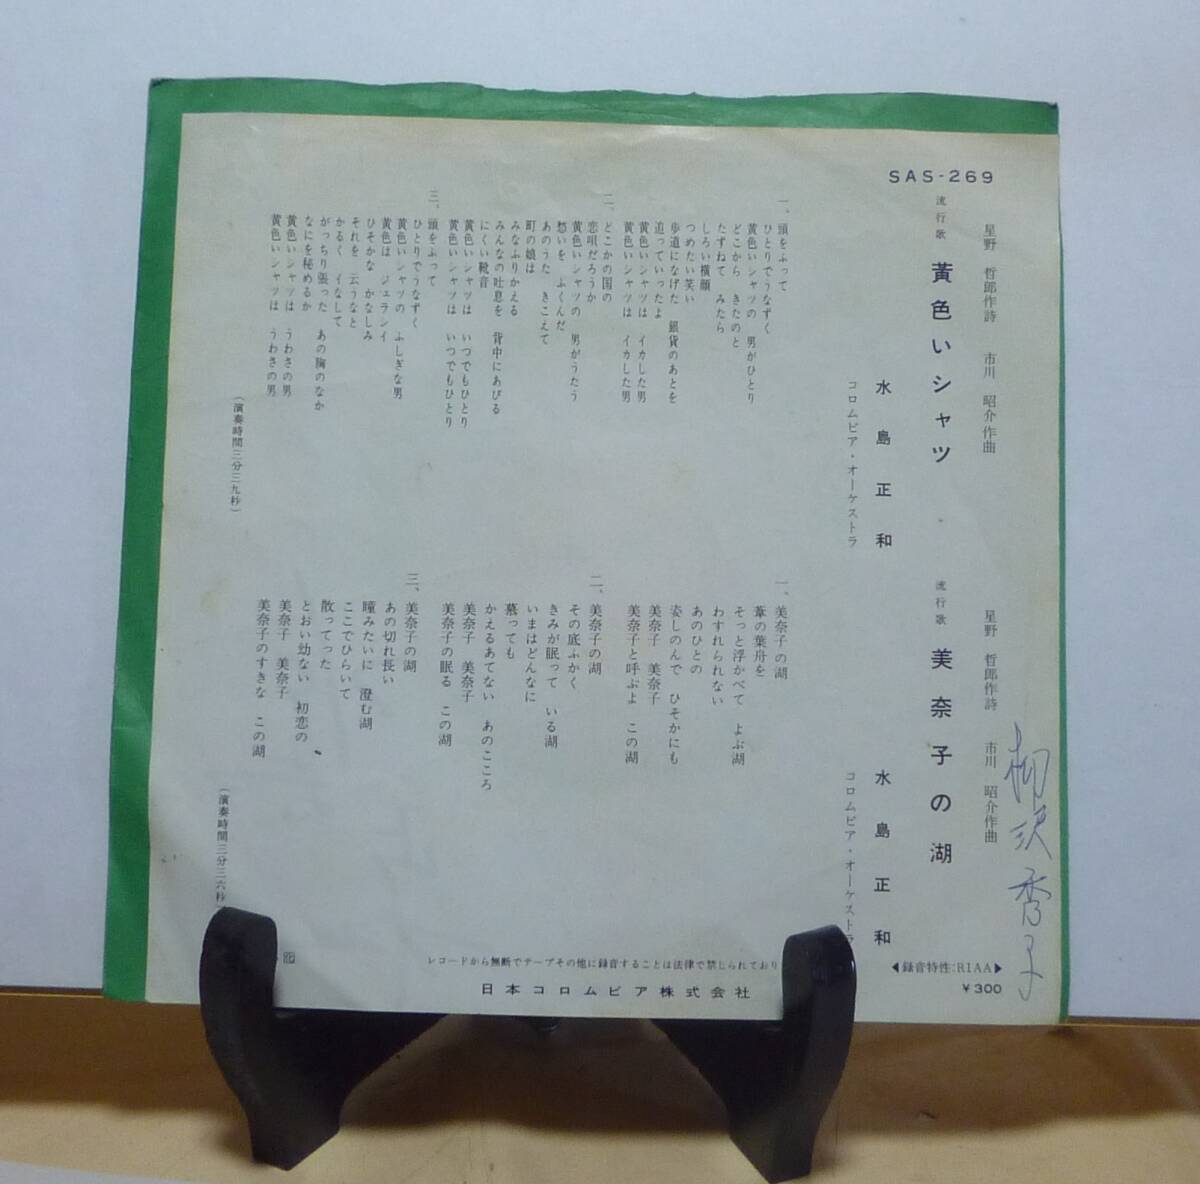 SAS-269
星野 哲郎作詩
市川 昭介作曲
流行歌 黃色いシャツ
水島正和
コロムビア・オーケストラ
一、頭をふって
ひとりでうなずく
黄色いシャツの 男がひとり
どこから きたのと
たずねて みたら
しろい横顔
つめたい笑い
歩道になげた 銀貨のあとを
追っていったよ
黄色いシャツは イカした男
黄色いシャツは イカした男
二、どこかの国の
恋唄だろうか
黄色いシャツの 男がうたう
愁いを ふくんだ
あのうた きこえて
町の娘は
みなふりかえる
みんなの吐息を 背中にあびる
にくい靴音
黄色いシャツは いつでもひとり
黄色いシャツは いつでもひとり
三、頭をふって
ひとりでうなずく
黄色いシャツの ふしぎな男
黄色は ジェラシイ
ひそかな かなしみ
それを 云うなと
かるく イなして
がっちり張った あの胸のなか
なにを秘めるか
黄色いシャツは うわさの男
黄色いシャツは うわさの男
(演奏時間三分三九秒)
星野 哲郎作詩
市川 昭介作曲
流行歌 美奈子の湖
水島正和
コロムビア・オーケストラ
一、美奈子の湖
葦の葉舟を
そっと浮かべて よぶ湖
わすれられない
あのひとの
姿しのんで ひそかにも
美奈子 美奈子
美奈子と呼ぶよ この湖
二、美奈子の湖
その底ふかく
きみが眠って いる湖
いまはどんなに
慕っても
かえるあてない あのこころ
美奈子 美奈子
美奈子の眠る この湖
三、美奈子の湖
あの切れ長い
瞳みたいに 澄む湖
ここでひらいて
散ってった
とおい幼ない 初恋の
美奈子 美奈子
美奈子のすきな この湖
(演奏時間三分三六秒)
柳沢秀子
◀録音特性:RIAA▶
¥300
レコードから無断でテープその他に録音することは法律で禁じられており
日本コロムビア株式会社